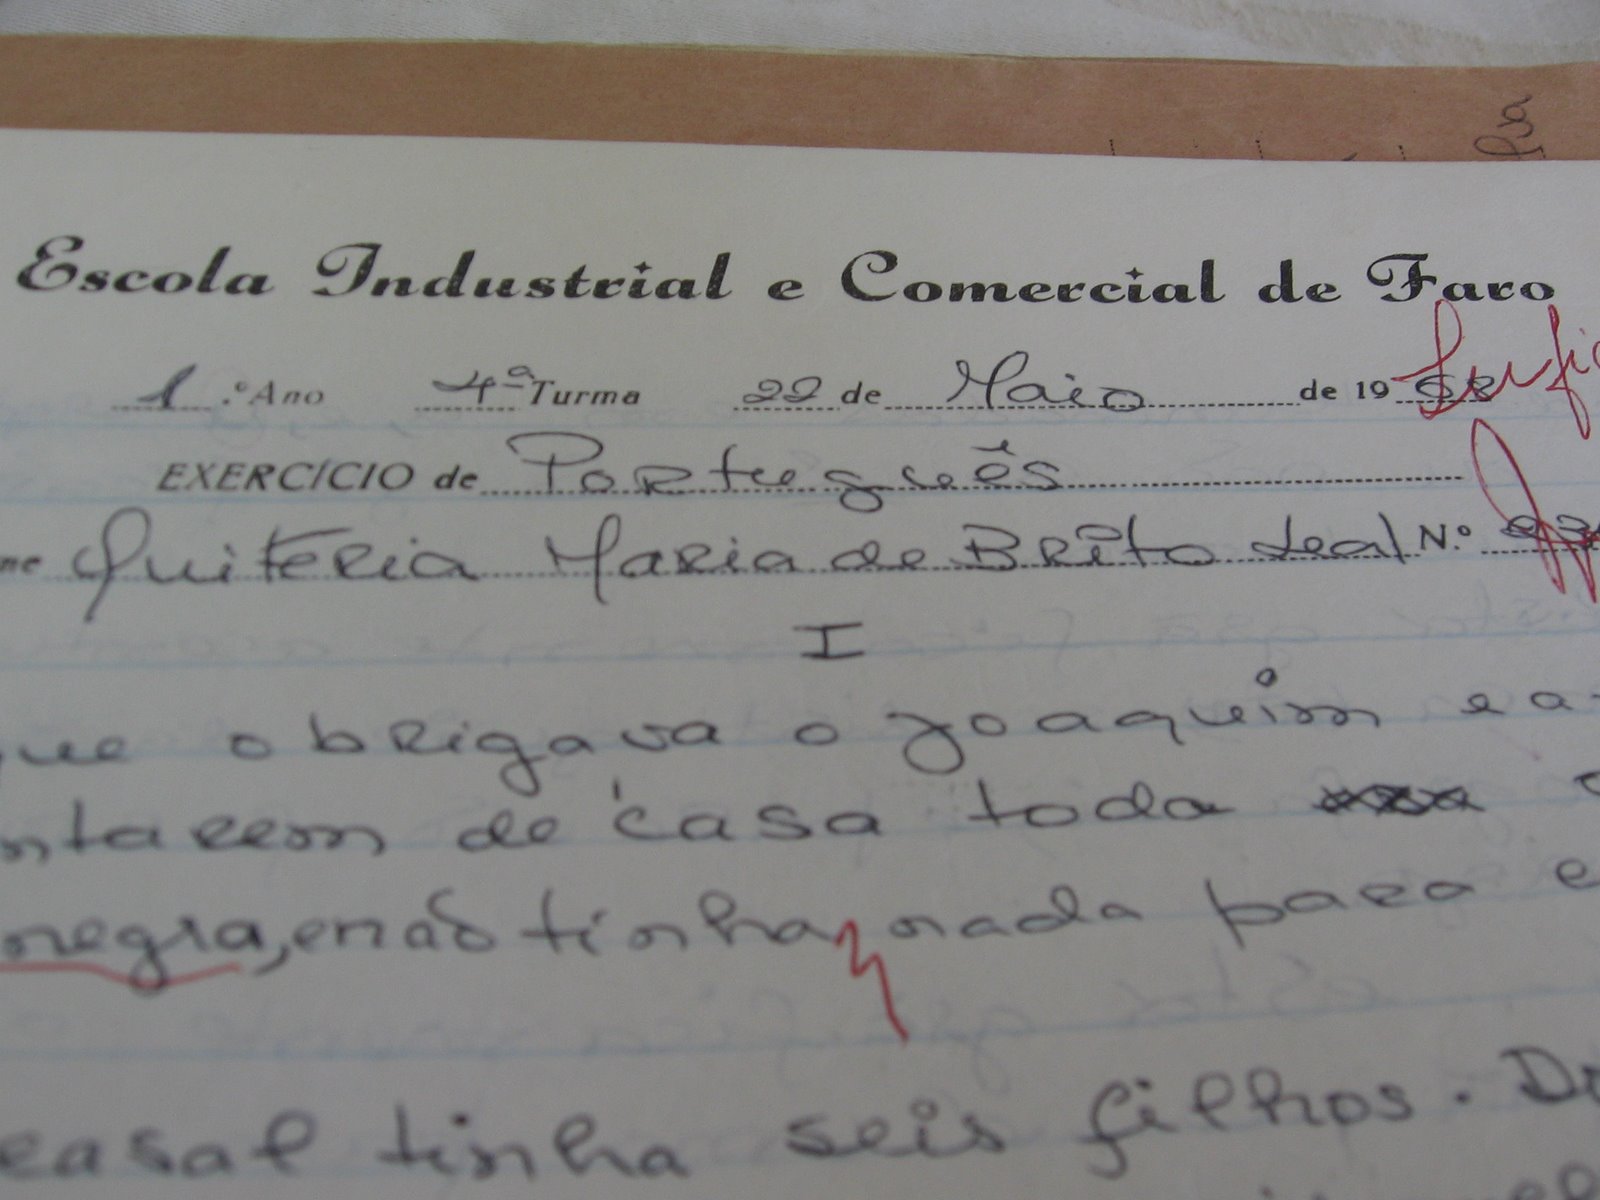 Escola Industrial e Comercial de Faro
1.º Ano 4ª Turma 22 de Maio de 1968
EXERCÍCIO de Português
me Quitéria Maria de Brito Leal N.º
I
que obrigava o Joaquim e a
ntarem de casa toda
negra, e não tinha nada para e
casal tinha seis filhos. Do